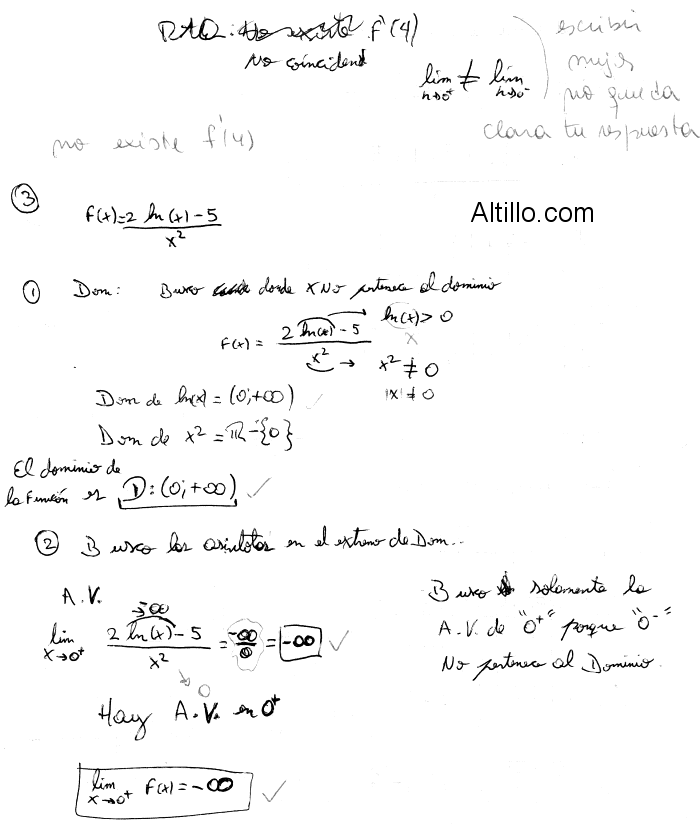 RTA: No existe f'(4)
No coinciden
lim ≠ lim
h→0⁺ h→0⁻
escribir
mejor
no queda
clara tu respuesta
no existe f'(4)
③
Altillo.com
F(x)=2 ln(x)-5
x²
① Dom: Busco donde x No pertenece al dominio
F(x) = 2 ln(x) - 5 ln(x) > 0
x² → x² ≠ 0
|x| ≠ 0
Dom de ln(x) = (0;+∞) ✓
Dom de x² = ℝ-{0}
El dominio de
la Función es D:(0;+∞) ✓
② Busco las asintotas en el extremo de Dom..
A.V.
lim 2 ln(x) - 5 = -∞ = -∞ ✓
x→0⁺ x² 0
→ 0
Busco solamente la
A.V. de "0⁺" porque "0⁻"
No pertenece al Dominio.
Hay A.V. en 0⁺
lim F(x) = -∞ ✓
x→0⁺